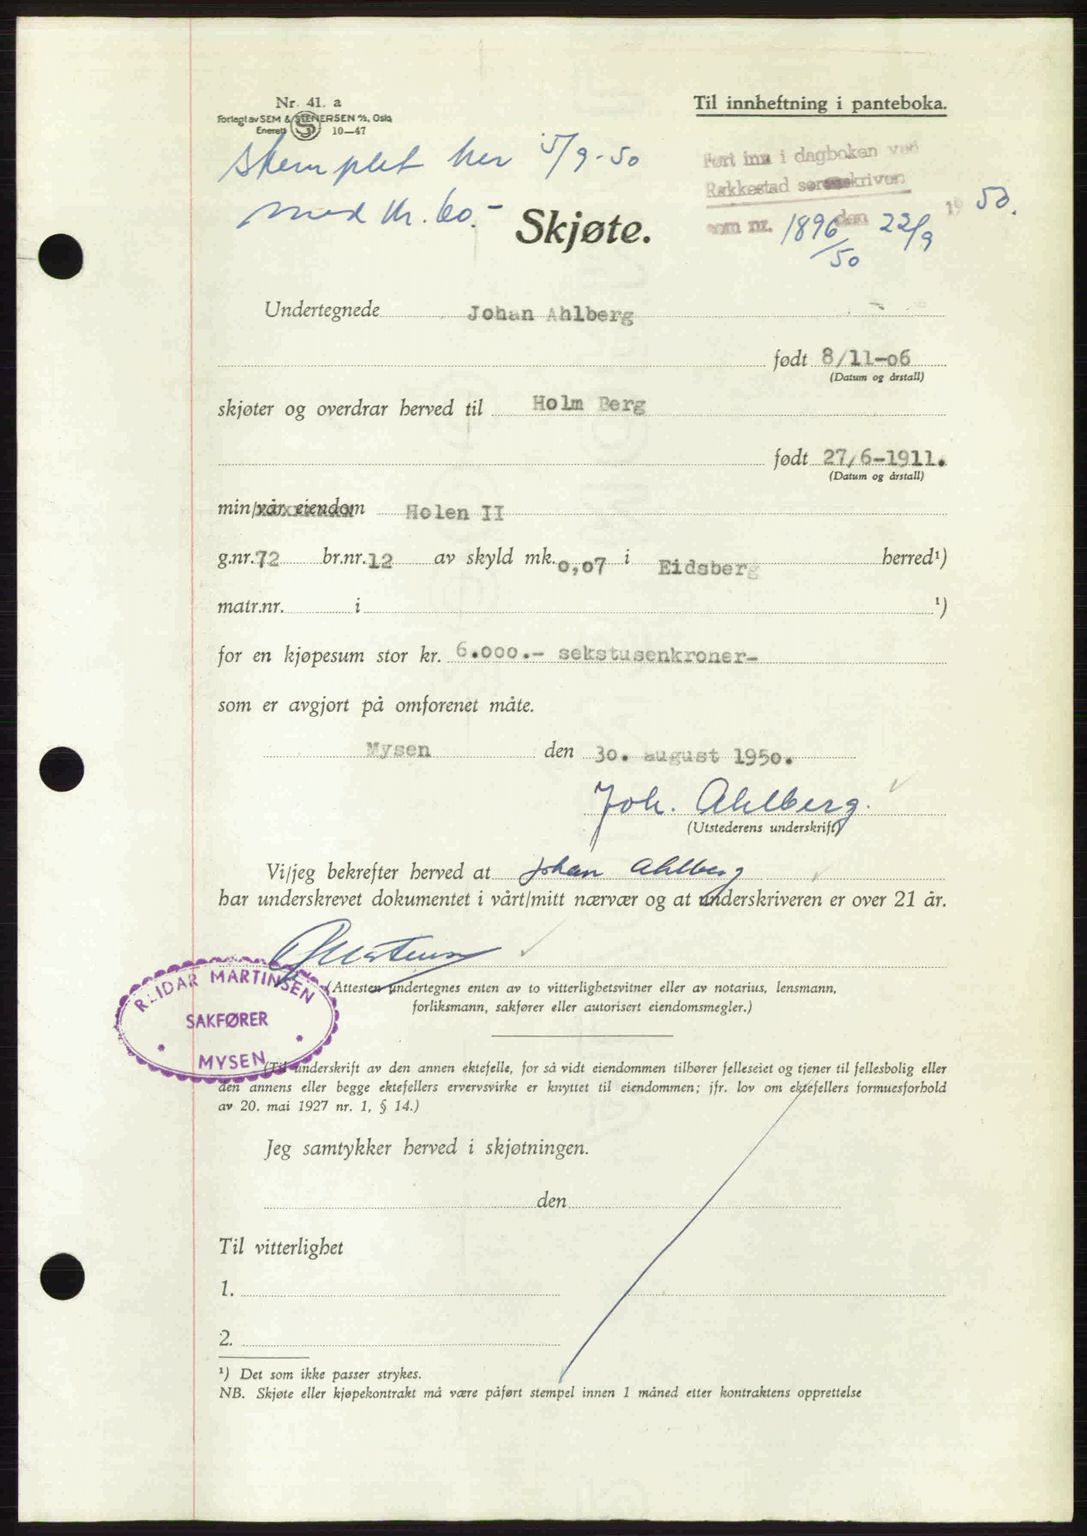 Nr. 41. a
Forlegt av SEM & STENERSEN A/S, Oslo
Enerett S 10—47
Til innheftning i panteboka.
Stemplet her 5/9-50
med kr. 60.-
Ført inn i dagboken ved
Rakkestad sorenskriveri
som nr. 1896/50 den 22/9 1950.
Skjøte.
Undertegnede Johan Ahlberg
født 8/11-06
(Datum og årstall)
skjøter og overdrar herved til Holm Berg
født 27/6-1911.
(Datum og årstall)
min/vår eiendom Holen II
g.nr. 72 br.nr. 12 av skyld mk. 0,07 i Eidsberg herred¹)
matr.nr. i ¹)
for en kjøpesum stor kr. 6.000.- sekstusenkroner-
som er avgjort på omforenet måte.
Mysen den 30. august 1950.
Joh. Ahlberg.
(Utstederens underskrift)
Vi/jeg bekrefter herved at Johan Ahlberg
har underskrevet dokumentet i vårt/mitt nærvær og at underskriveren er over 21 år.
REIDAR MARTINSEN
SAKFØRER
* MYSEN *
(Attesten undertegnes enten av to vitterlighetsvitner eller av notarius, lensmann,
forliksmann, sakfører eller autorisert eiendomsmegler.)
(Til underskrift av den annen ektefelle, for så vidt eiendommen tilhører felleseiet og tjener til fellesbolig eller
den annens eller begge ektefellers ervervsvirke er knyttet til eiendommen; jfr. lov om ektefellers formuesforhold
av 20. mai 1927 nr. 1, § 14.)
Jeg samtykker herved i skjøtningen.
den
Til vitterlighet
1.
2.
¹) Det som ikke passer strykes.
NB. Skjøte eller kjøpekontrakt må være påført stempel innen 1 måned etter kontraktens opprettelse